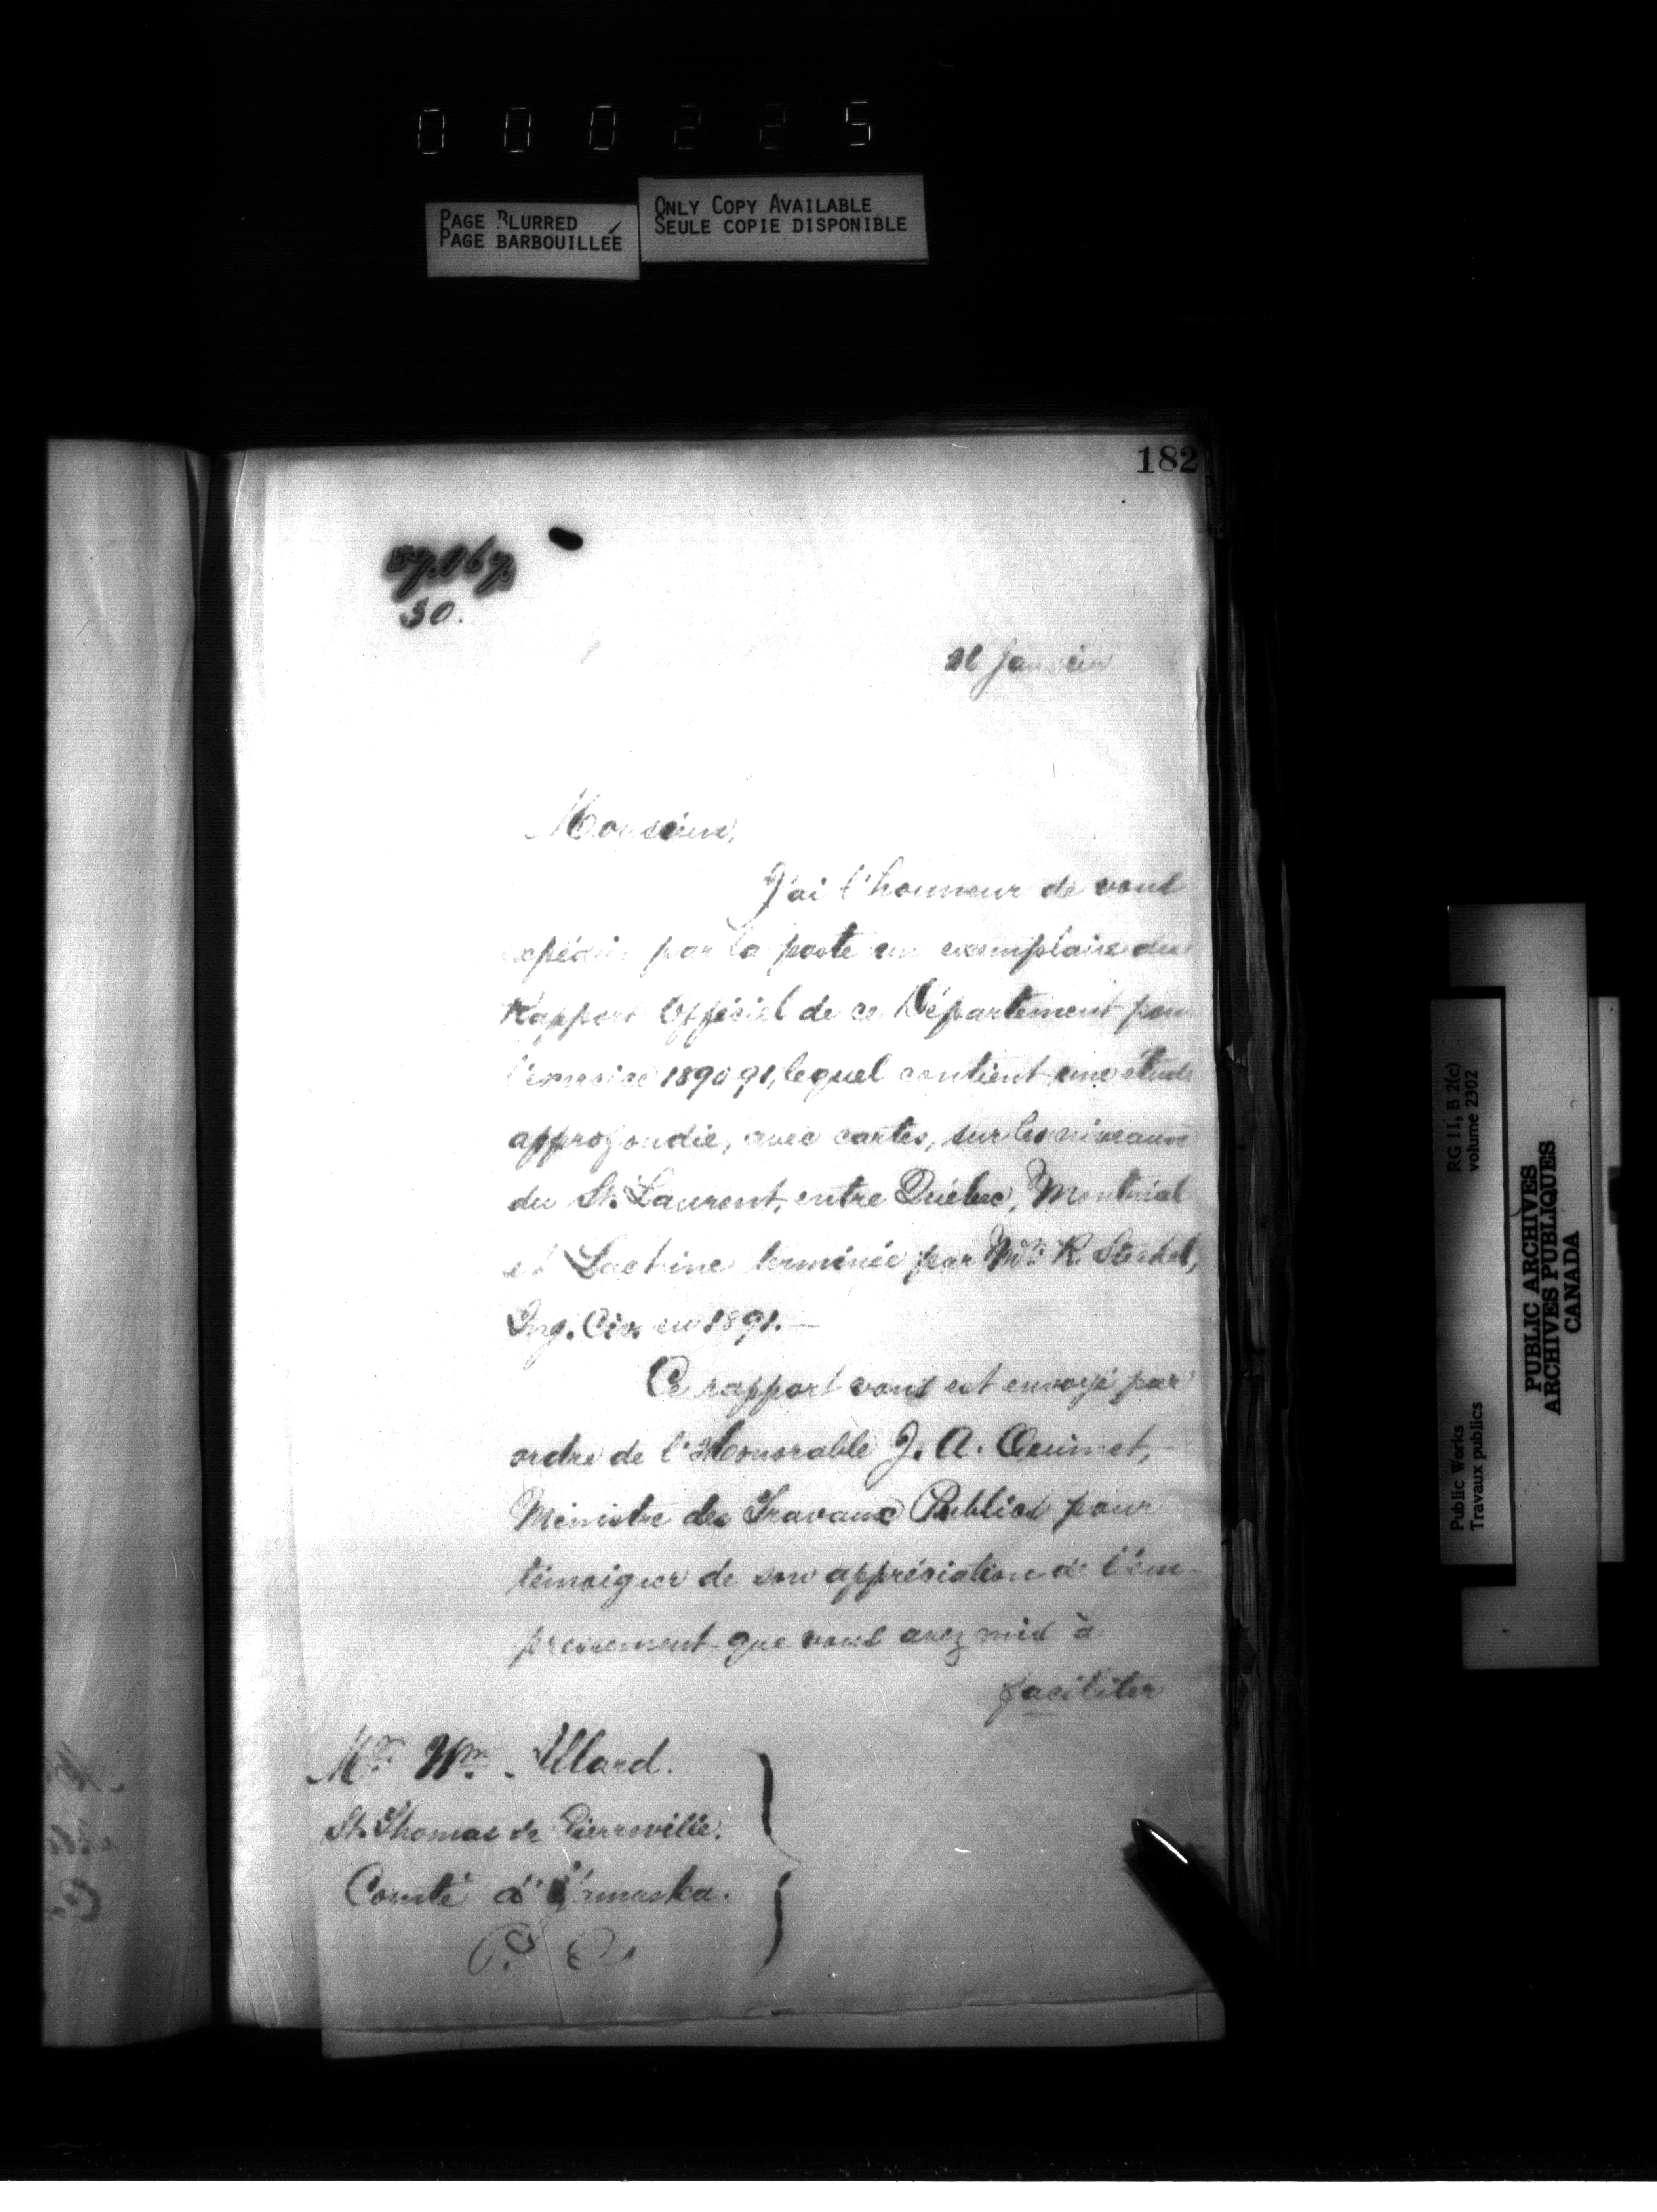 000225
PAGE BLURRED
PAGE BARBOUILLÉE
ONLY COPY AVAILABLE
SEULE COPIE DISPONIBLE
182
30.
Janvier
Monsieur,
J'ai l'honneur de vous
expédier par la poste un exemplaire du
Rapport Officiel de ce Département pour
l'exercice 1890 91, lequel contient une étude
approfondie, avec cartes, sur les niveaux
du St. Laurent, entre Québec, Montréal
et Lachine terminée par Mr. R. Steckel,
Ing. Civ. en 1891.—
Ce rapport vous est envoyé par
ordre de l'Honorable J. A. Ouimet,
Ministre des Travaux Publics pour
témoigner de son appréciation de l'em-
pressement que vous avez mis à
faciliter
Mr. Wm. Allard.
St. Thomas de Pierreville.
Comté d'Yamaska.
P. Q.
RG 11, B 2(c)
volume 2302
Public Works
Travaux publics
PUBLIC ARCHIVES
ARCHIVES PUBLIQUES
CANADA